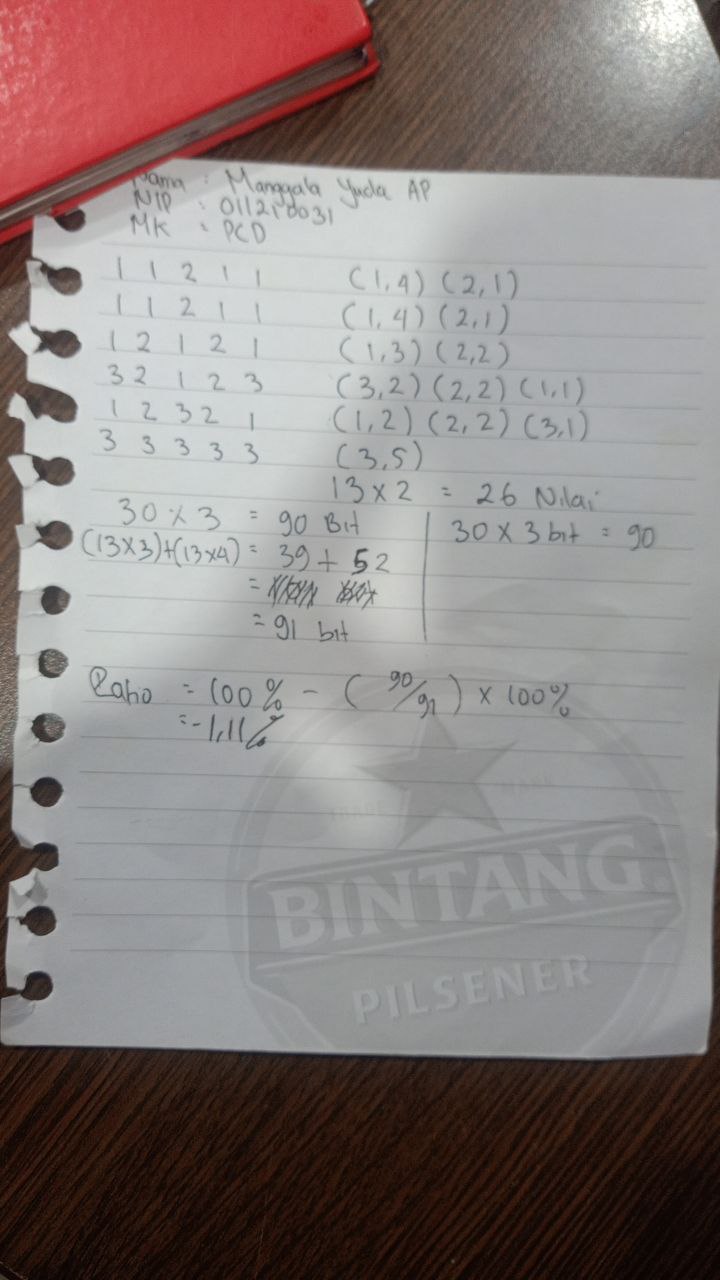 Nama : Manggala Yuda AP
NIP : 011210031
MK : PCD
1 1 2 1 1 (1,4) (2,1)
1 1 2 1 1 (1,4) (2,1)
1 2 1 2 1 (1,3) (2,2)
3 2 1 2 3 (3,2) (2,2) (1,1)
1 2 3 2 1 (1,2) (2,2) (3,1)
3 3 3 3 3 (3,5)
13 x 2 = 26 Nilai
30 x 3 = 90 Bit
(13x3)+(13x4) = 39 + 52
=
= 91 bit
30 x 3 bit = 90
Ratio = 100% - (90/91) x 100%
= -1,11%
TRADE MARK
BINTANG
PILSENER